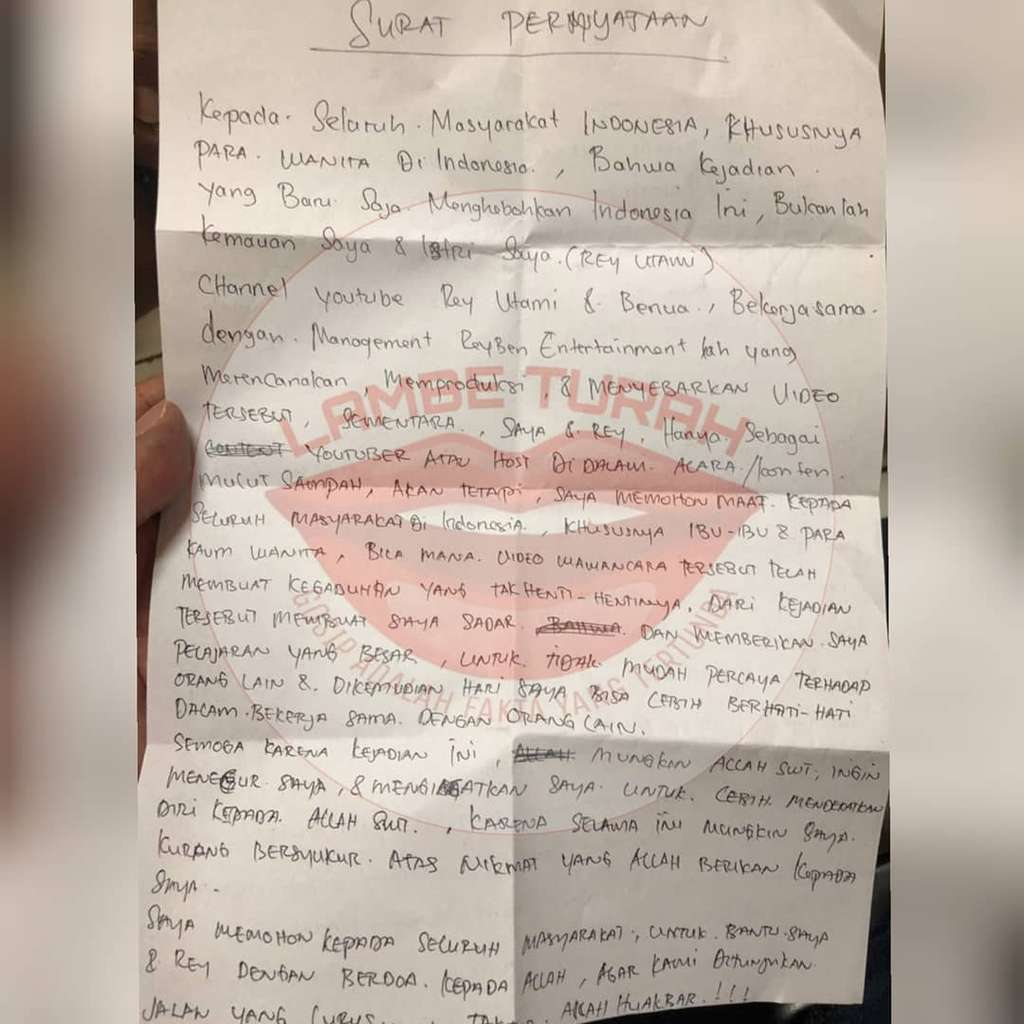 SURAT PERNYATAAN
Kepada. Seluruh. Masyarakat INDONESIA, KHUSUSNYA
PARA. WANITA Di Indonesia. , Bahwa Kejadian.
yang Baru Saja Menghebohkan Indonesia Ini, Bukanlah
kemauan Saya & Istri Saya. (REY UTAMI)
CHannel youtube Rey Utami & Benua. , Bekerjasama.
dengan. Management ReyBen Entertainment lah yang
Merencanakan Memproduksi, & MENYEBARKAN VIDEO
TERSEBUT, SEMENTARA. , SAYA & REY. Hanya Sebagai
CONTENT YOUTUBER ATAU HOST Di DALAM. ACARA./konten.
MULUT SAMPAH, AKAN TETAPI, SAYA MEMOHON MAAF. KEPADA
SELURUH MASYARAKAT Di Indonesia. , KHUSUSNYA IBU-IBU & PARA
KAUM WANITA, BILA MANA. VIDEO WAWANCARA TERSEBUT TELAH
MEMBUAT KEGADUHAN YANG TAK HENTI-HENTINYA. DARI KEJADIAN
TERSEBUT MEMBUAT SAYA SADAR. BAHWA. DAN MEMBERIKAN SAYA
PELAJARAN YANG BESAR, UNTUK. TIDAK MUDAH PERCAYA TERHADAP
ORANG LAIN & DIKEMUDIAN HARI SAYA BISA LEBIH BERHATI-HATI
DALAM. BEKERJA SAMA. DENGAN ORANG LAIN.
SEMOGA KARENA KEJADIAN INI, ALLAH MUNGKIN ALLAH SWT, INGIN
MENEGUR SAYA, & MENGINGATKAN SAYA. UNTUK. LEBIH MENDEKATKAN
DIRI KEPADA. ALLAH SWT. , KARENA SELAMA INI MUNGKIN SAYA.
KURANG BERSYUKUR. ATAS NIKMAT YANG ALLAH BERIKAN KEPADA
SAYA.
SAYA MEMOHON KEPADA SELURUH MASYARAKAT, UNTUK. BANTU SAYA
& REY DENGAN BERDOA. KEPADA ALLAH, AGAR KAMI DITUNJUKAN
JALAN YANG LURUS ALLAH HUAKBAR.!!!
LAMBE TURAH
GOSIP ADALAH FAKTA YANG TERTUNDA